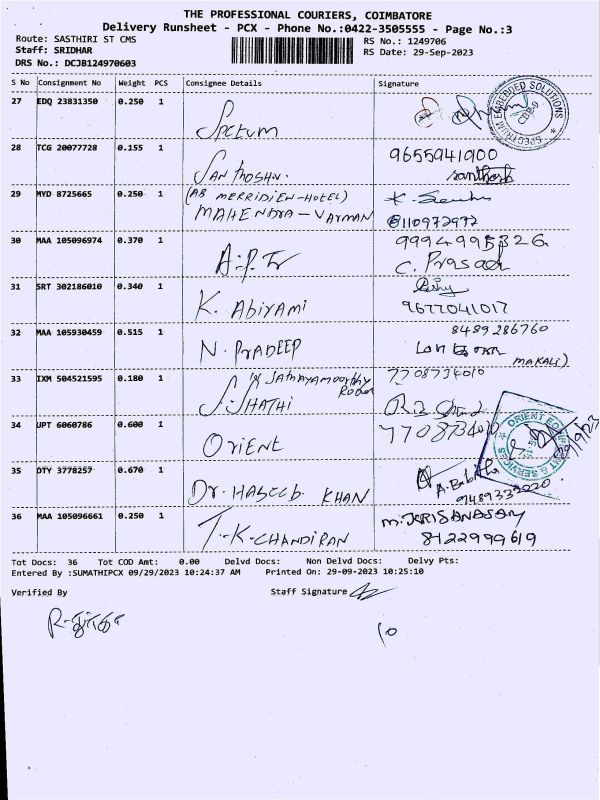 THE PROFESSIONAL COURIERS, COIMBATORE
Delivery Runsheet - PCX - Phone No.:0422-3505555 - Page No.:3
Route: SASTHIRI ST CMS
RS No.: 1249706
Staff: SRIDHAR
RS Date: 29-Sep-2023
DRS No.: DCJB124970603
S No Consignment No Weight PCS Consignee Details Signature
27 EDQ 23831350 0.250 1
SPECTRUM EMBEDDED SOLUTIONS
CBE-9
Spetum
28 TCG 20077728 0.155 1
9655941900
Santhosh.
santhosh
29 MYD 8725665 0.250 1
(AB MERRIDIEN-HOTEL)
MAHENDRA-VARMAN
8110972972
30 MAA 105096974 0.370 1
C. Prasad
31 SRT 302186010 0.340 1
K. Abiyami
9677041017
32 MAA 105930459 0.515 1
8489286760
N. PRADEEP
MAKALI)
33 IXM 504521595 0.180 1
7708734010
34 UPT 6060786 0.600 1
7708734010
ORIENT
& SERVICES
29/9/23
Orient
35 OTY 3778257 0.670 1
A. Babitha
9489333020
Dr. HABEEB KHAN
36 MAA 105096661 0.250 1
T.K-CHANDIRAN
8122999619
Tot Docs: 36 Tot COD Amt: 0.00 Delvd Docs: Non Delvd Docs: Delvy Pts:
Entered By :SUMATHIPCX 09/29/2023 10:24:37 AM Printed On: 29-09-2023 10:25:10
Verified By Staff Signature
10